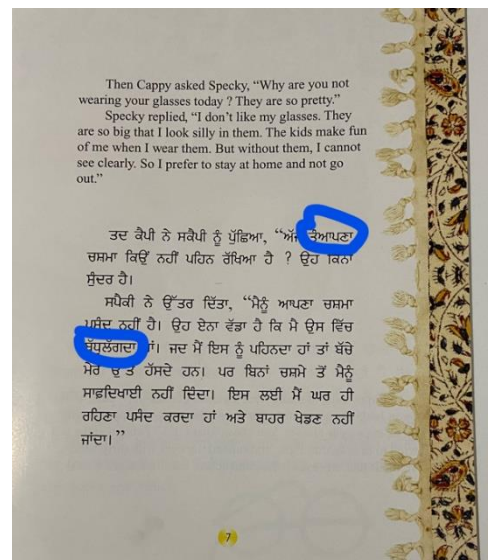 Then Cappy asked Specky, “Why are you not
wearing your glasses today ? They are so pretty.”
Specky replied, “I don’t like my glasses. They
are so big that I look silly in them. The kids make fun
of me when I wear them. But without them, I cannot
see clearly. So I prefer to stay at home and not go
out.”
ਤਦ ਕੈਪੀ ਨੇ ਸਕੈਪੀ ਨੂੰ ਪੁੱਛਿਆ, “ਅੱਜ ਤੂੰਆਪਣਾ
ਚਸ਼ਮਾ ਕਿਉਂ ਨਹੀਂ ਪਹਿਨ ਰੱਖਿਆ ਹੈ ? ਉਹ ਕਿੰਨਾ
ਸੁੰਦਰ ਹੈ।
ਸਪੈਕੀ ਨੇ ਉੱਤਰ ਦਿੱਤਾ, “ਮੈਨੂੰ ਆਪਣਾ ਚਸ਼ਮਾ
ਪਸੰਦ ਨਹੀਂ ਹੈ। ਉਹ ਏਨਾ ਵੱਡਾ ਹੈ ਕਿ ਮੈ ਉਸ ਵਿੱਚ
ਬੁੱਧੂਲੱਗਦਾ ਹਾਂ। ਜਦ ਮੈਂ ਇਸ ਨੂੰ ਪਹਿਨਦਾ ਹਾਂ ਤਾਂ ਬੱਚੇ
ਮੇਰੇ ਉੱਤੇ ਹੱਸਦੇ ਹਨ। ਪਰ ਬਿਨਾਂ ਚਸ਼ਮੇ ਤੋਂ ਮੈਨੂੰ
ਸਾਫ਼ਦਿਖਾਈ ਨਹੀਂ ਦਿੰਦਾ। ਇਸ ਲਈ ਮੈਂ ਘਰ ਹੀ
ਰਹਿਣਾ ਪਸੰਦ ਕਰਦਾ ਹਾਂ ਅਤੇ ਬਾਹਰ ਖੇਡਣ ਨਹੀਂ
ਜਾਂਦਾ।”
7